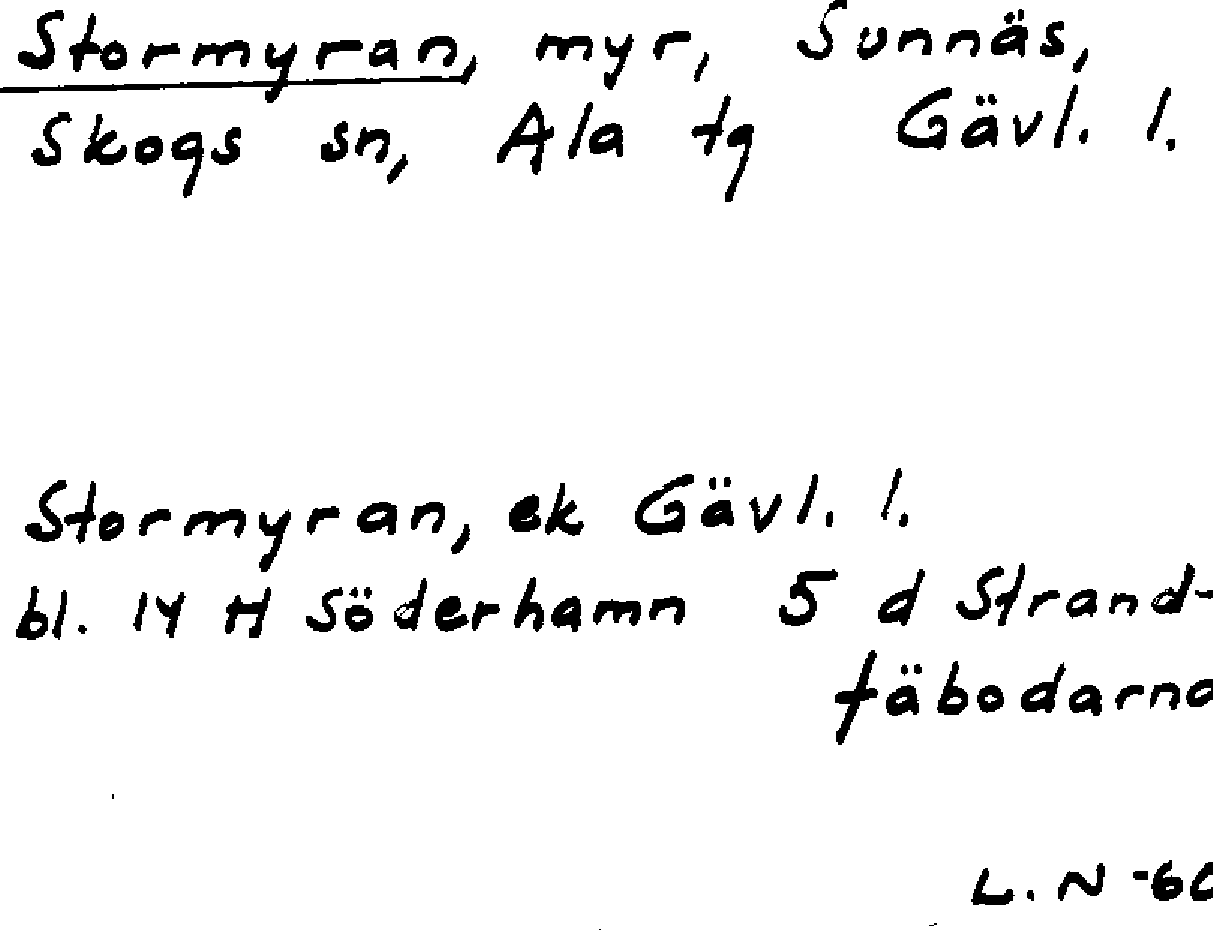 Stormyran, myr, Sunnäs,
Skogs sn, Ala tg Gävl. l.
Stormyran, ek Gävl. l.
bl. 14 H Söderhamn 5 d Strand-
fäbodarna
L. N -60